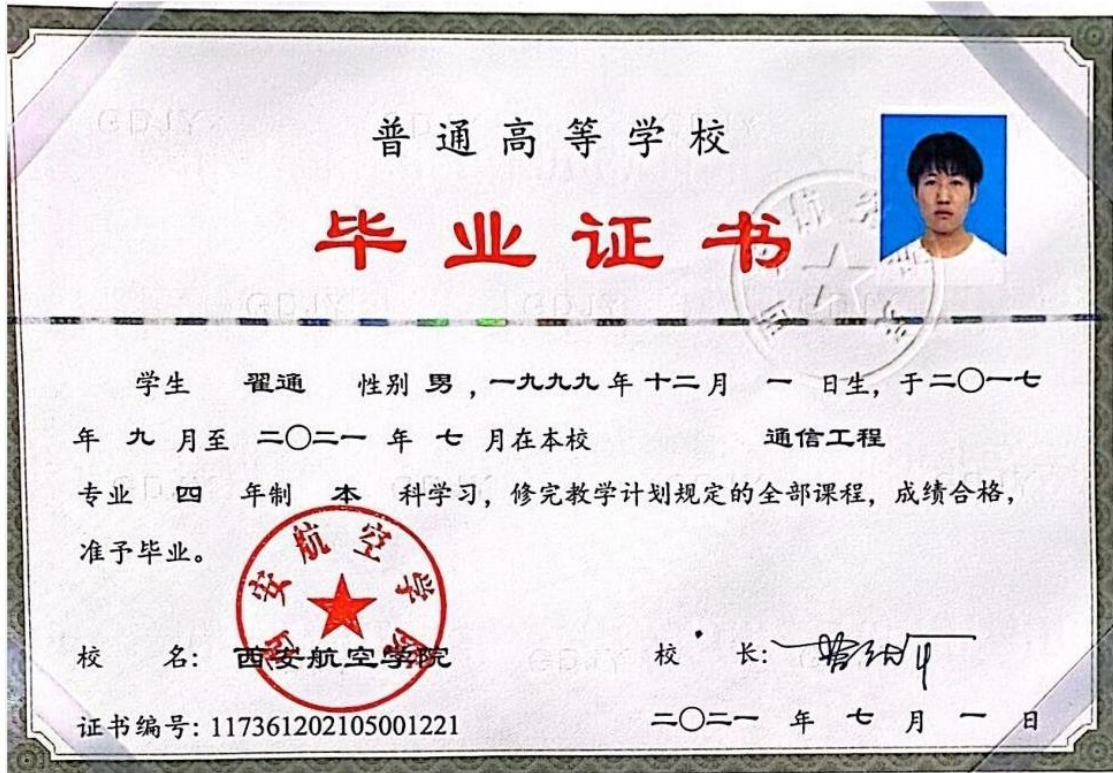 普通高等学校
毕业证书
学生 翟通 性别 男 , 一九九九 年 十二 月 一 日生, 于 二〇一七
年 九 月至 二〇二一 年 七 月在本校 通信工程
专业 四 年制 本 科学习, 修完教学计划规定的全部课程, 成绩合格,
准予毕业。
西安航空学院
校 名: 西安航空学院 校 长:
证书编号: 117361202105001221 二〇二一 年 七 月 一 日